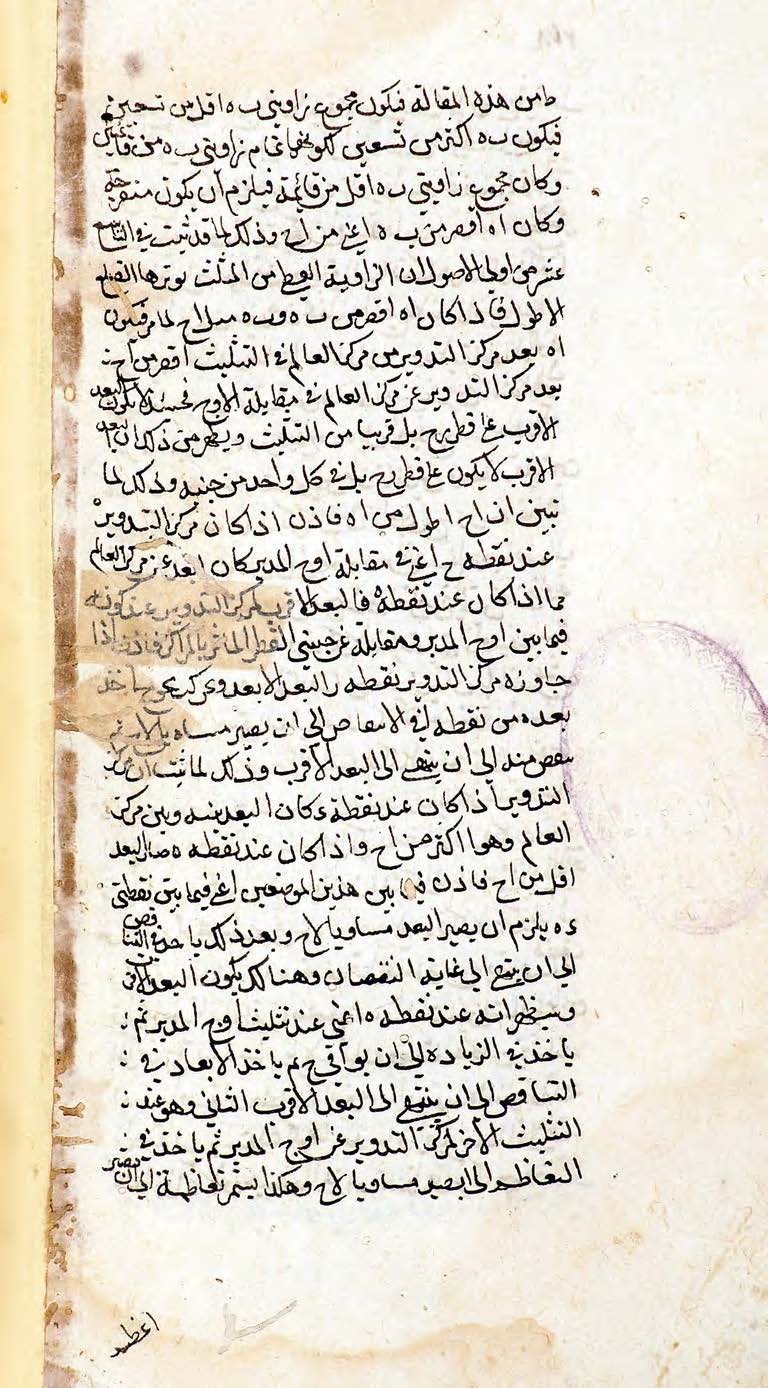 ط من هذه المقالة فيكون مجموع زاويتي ب ه اقل من تسعين
فيكون ب ه اكثر من تسعين لكونهما تمام زاويتي ب ه من قائمتين
وكان مجموع زاويتي ب ه اقل من قائمة فيلزم ان يكون منفرجة
وكان ا ه اقصر من ب ه اعني من ا ح وذلك لما قد ثبت في التاسع
عشر من اولى الاصول ان الزاوية العظمى من المثلث يوترها الضلع
الاطول فاذا كان ا ه اقصر من ب ه و ب ه مثل ا ح لما مر فيكون
ا ه بعد مركز التدوير من مركز العالم في التثليث اقصر من ا ح
بعد مركز التدوير عن مركز العالم في مقابلة الاوج فحينئذ لا يكون البعد
الاقرب على قطر ح بل قريبا من التثليث ويظهر من ذلك ان البعد
الاقرب لا يكون على قطر ح بل في كل واحد من جنبيه وذلك لما
تبين ان ا ح اطول من ا ه فاذن اذا كان مركز التدوير
عند نقطه ح اعني في مقابلة اوج المدير كان ابعد عن مركز العالم
مما اذا كان عند نقطة ه فالبعد الاقرب لمركز التدوير عند كونه
فيما بين اوج المدير ومقابلة عن جنبتي القطر المار بالمراكز فاذن اذا
جاوزه مركز التدوير نقطه ر البعد الابعد وتحرك نحو ح اخذ
بعده من نقطه ا في الانتقاص الى ان يصير مساويا لا ح ثم
ينقص منه الى ان ينتهى الى البعد الاقرب وذلك لما ثبت ان مركز
التدوير اذا كان عند نقطة ء كان البعد بينه وبين مركز
العالم وهو ا اكثر من ا ح واذا كان عند نقطه ه صار البعد
اقل من ا ح فاذن فيما بين هذين الموضعين اعني فيما بين نقطتي
ء ه يلزم ان يصير البعد مساويا لا ح وبعد ذلك ياخذ في التناقص
الى ان ينتهى الى غاية النقصان وهنالك يكون البعد الاقرب
وسيظهر انه عند نقطه ه اعني عند تثليث اوج المدير ثم
ياخذ في الزيادة الى ان يوافي ح ثم ياخذ الابعاد في
التناقص الى ان ينتهى الى البعد الاقرب الثاني وهو عند
التثليث الاخر لمركز التدوير عن اوج المدير ثم ياخذ في
التعاظم الى ا يصير مساويا لا ح وهكذا يستمر تعاظمه الى ان يصير
اعظم